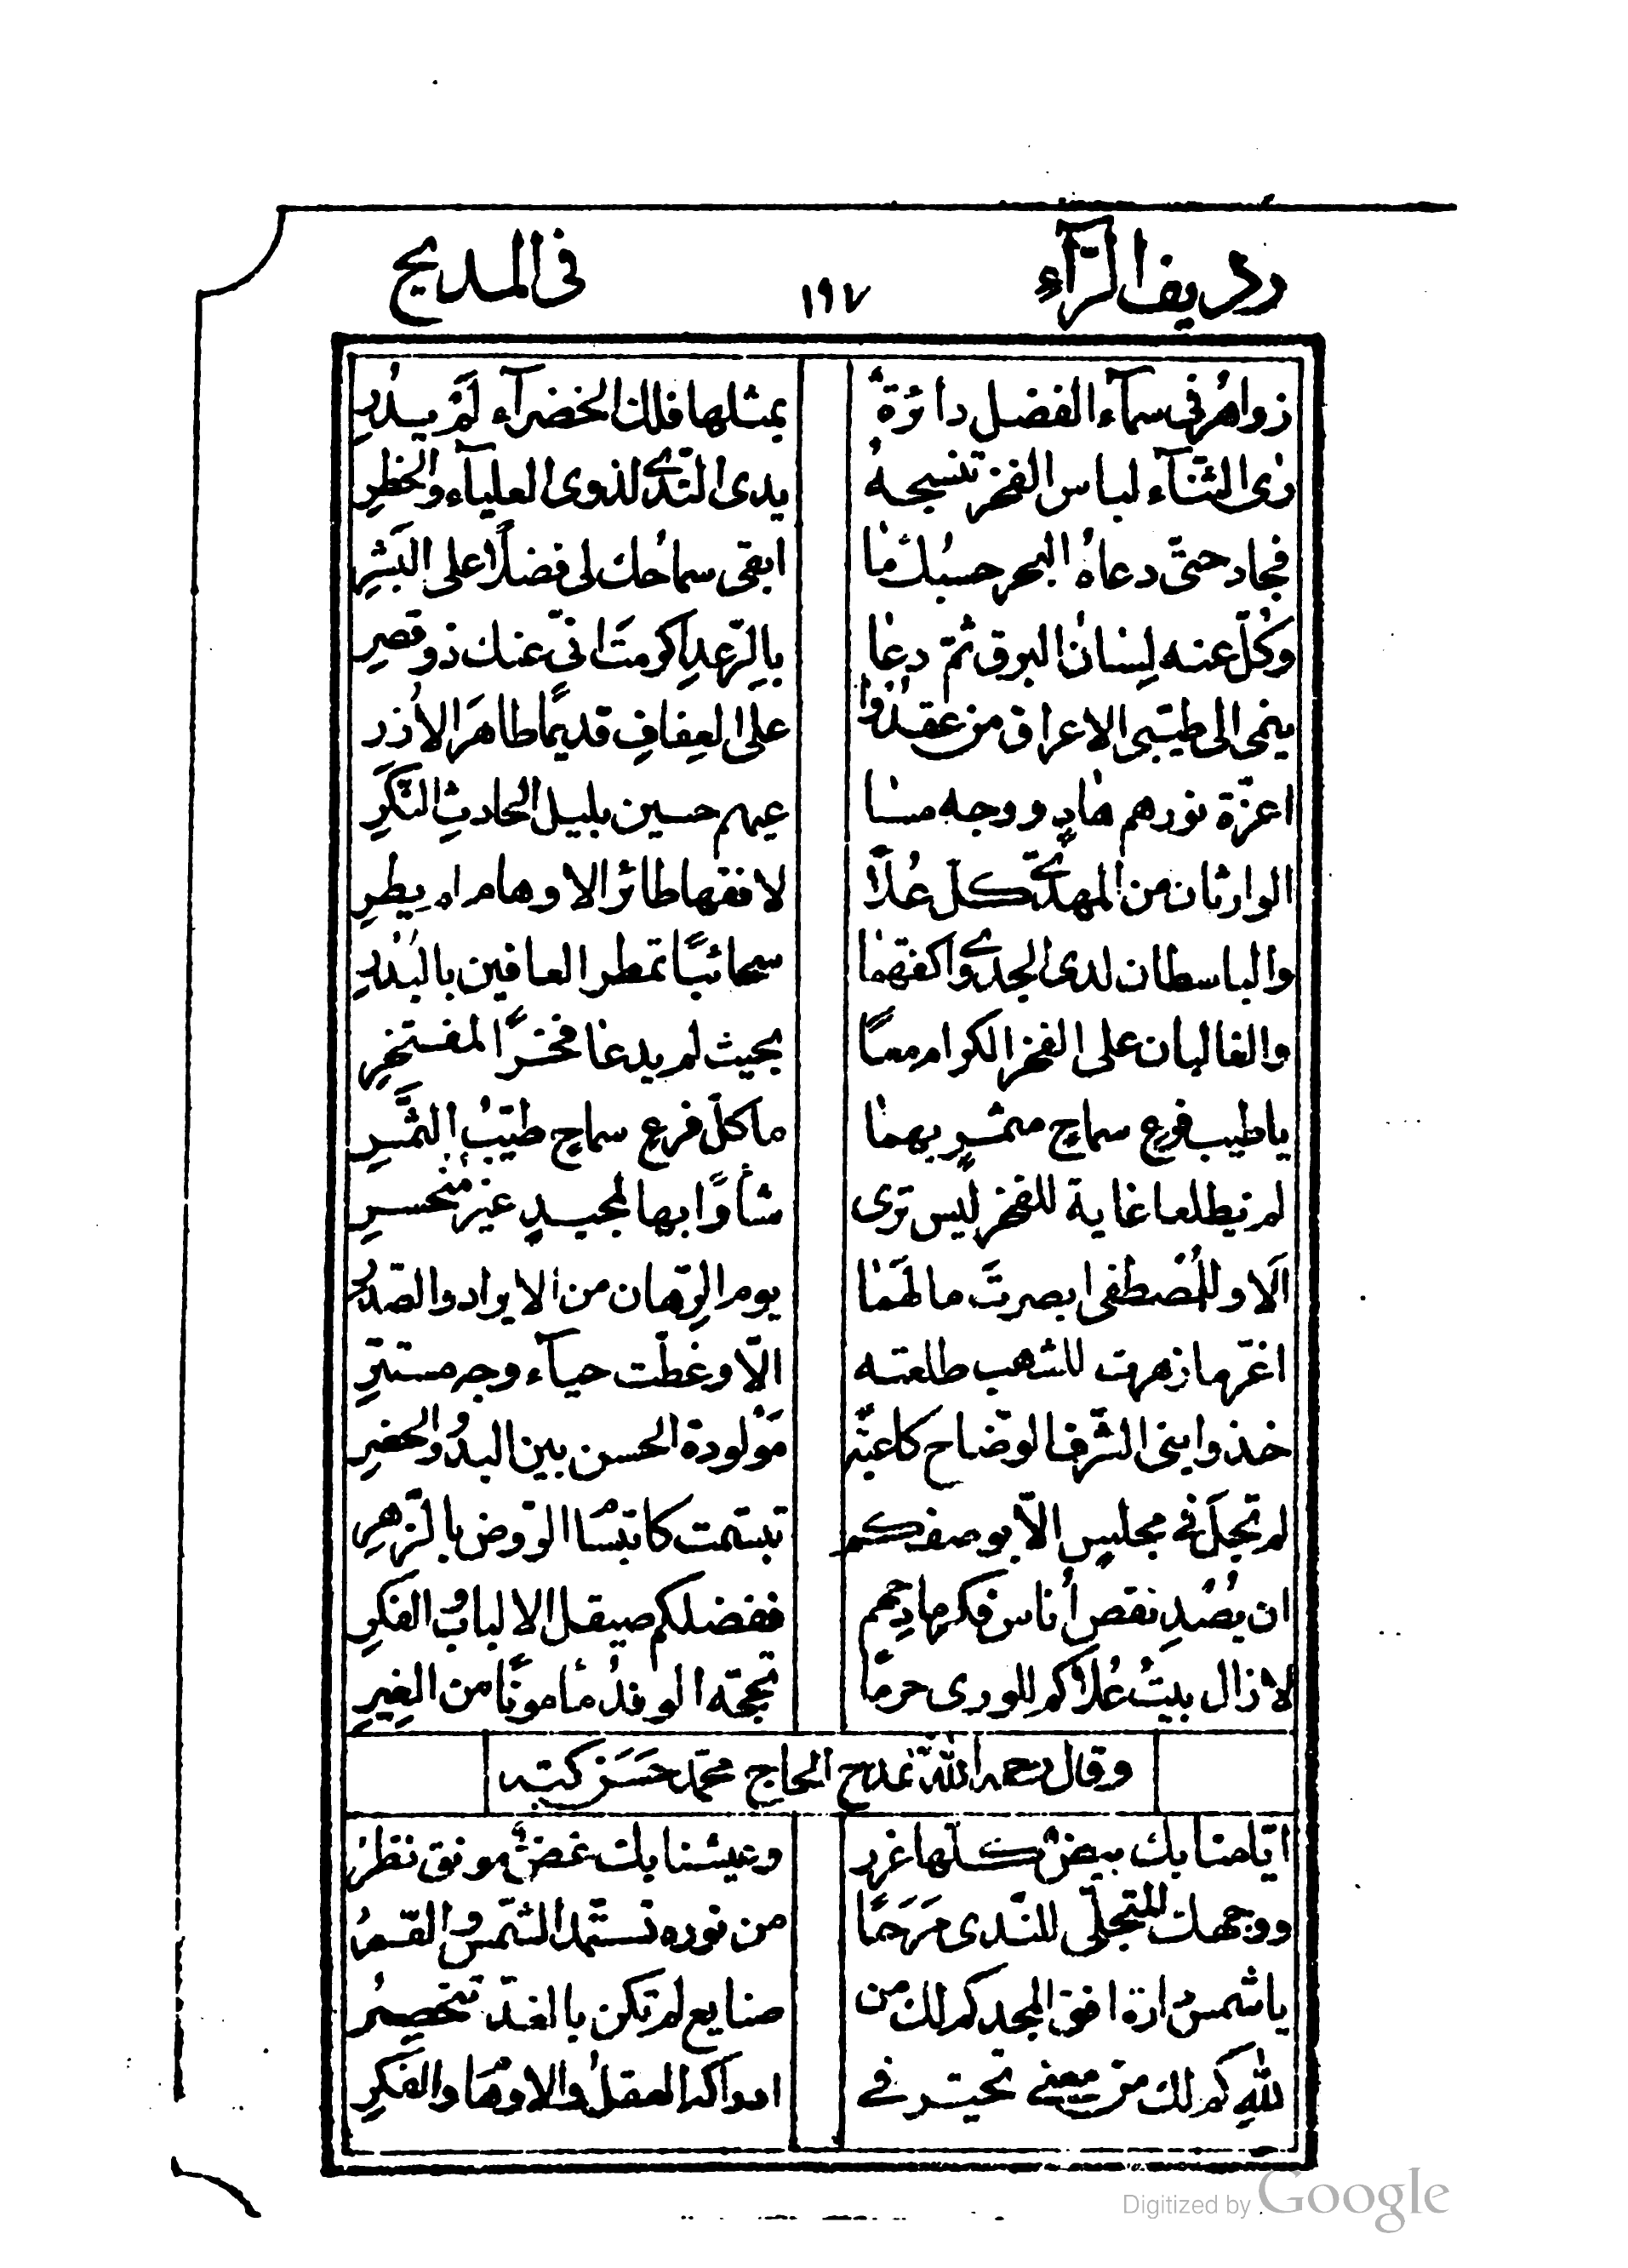 رديف الرّآء ١٩٧ فى المديح
زواهرُ فى سمآء الفضل دائرةٌ بمثلها فلك الخضرآء لَمْ يَدُرِ
ذى الثّنآء لباس الفخر تنسجهُ يدى النّدى لذوى العليآء والخطرِ
فجاد حتىّ دعاهُ البحر حسبك ما ابقى سماحُك لى فضلًا على البَشَرِ
وكَلّ عنه لِسٰانُ البرق ثمّ دعٰا بالرّعدِ اكرمتَ انّى عنك ذو قصرِ
ينمى الى طيّبى الاعراق من عقدُوا على العِفافِ قديمًا طاهرَ الاُزُرِ
اعزّة نورهم هادٍ ووجه مسا عيهم حسين بليل الحادثِ النَّكَرِ
الوارثان من المهدىّ كلّ عُلًا لافقها طائر الاوهام لم يطرِ
والباسطان لدى الجدى واكفهما سحائبًا تمطر العافين بالبُدرِ
والغالبان على الفخر الكرام معًا بحيث لم يدعا فخرًا لمفتخرِ
ياطيب فرعٍ سماحٍ مثمرٍ بهمٰا ماكلّ فرعٍ سماحٍ طيّبُ الثَّمَرِ
لم يطلعا غاية للفخر ليس ترى شأوًا بها لمجيدٍ غير منحسرِ
اَلا وللمُصْطفى ابصرتَ ما لهَمٰا يوم الرِّهان من الايراد والصّدرِ
اغرّ ما زهرت للشهب طلعته الّا وغطّت حيآء وجه مستترِ
خذوا بنى الشّرف الوضّاح كاعبةً مَوْلودة الحسن بين البدْو والحضرِ
لم تجلَ فى مجلسٍ الّا بوصفكم تبسّمت كابتسٰام الرّوض بالزّهرِ
ان يُصْدِ نقص اُناس فكر مادحهم ففضلكم صيقل الالباب والفكرِ
لا زال بيتُ عُلاكم للورى حرمًا تحجّه الوفدُ مأمونًا من الغِيَرِ
وقال رحمه الله تع يمدح الحاج محمّد حسَن كبّه
ايّامنا بك بيضٌ كلّها غرر وعيشنا بك غضٌّ مونق نظرُ
ووجهك المتجلّى للنّدى مَرَحًا من نوره تستمد الشّمس والقمرُ
ياشمس دارة افق المجد كم لك من صنايع لم تكن بالعَدّ تنحصرُ
للهِ كم لك من معنى تحيّر فى ادراكه العقلُ والاوهٰام والفِكَرُ
Digitized by Google